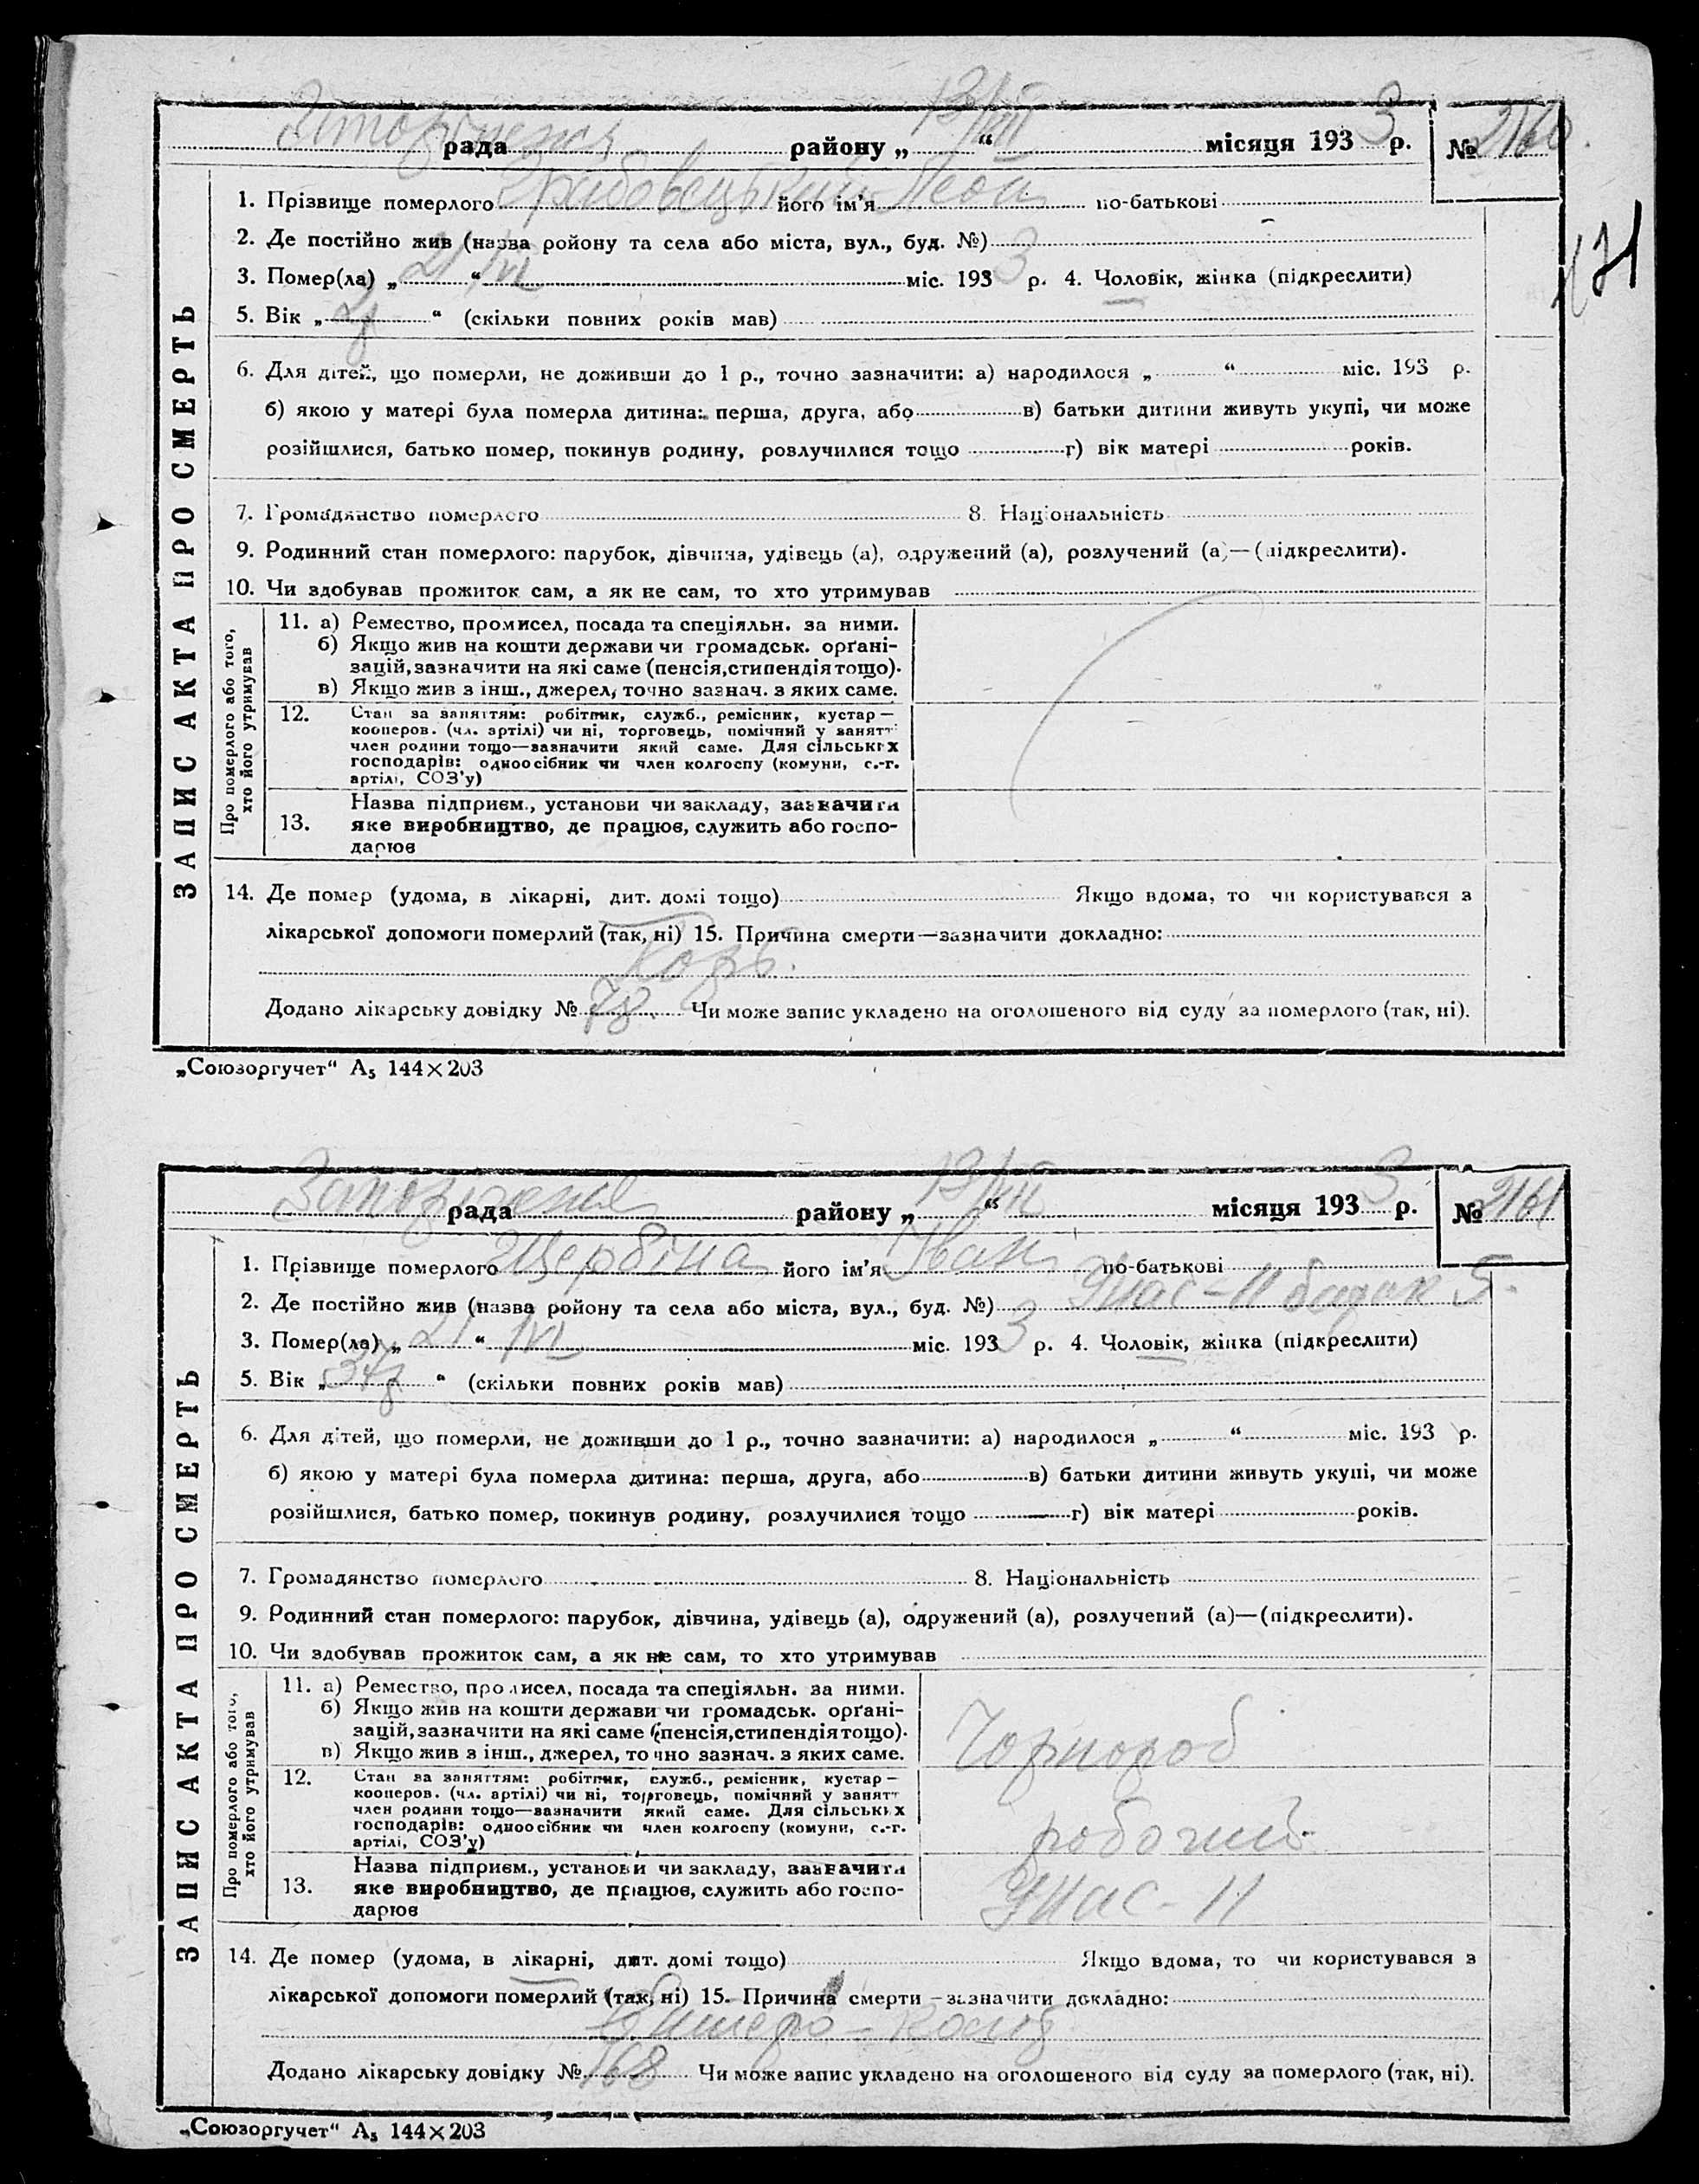 Запорізька рада району „13/VIII“ місяця 1933 р. № 2160.
171
1. Прізвище померлого Грабовецький його ім'я Леон по-батькові
2. Де постійно жив (назва ройону та села або міста, вул., буд. №) -
3. Помер(ла) „21“ /VI міс. 1933 р. 4. Чоловік, жінка (підкреслити)
5. Вік „2р“ (скільки повних років мав)
6. Для дітей, що померли, не доживши до 1 р., точно зазначити: а) народилося „ “ міс. 193 р.
б) якою у матері була померла дитина: перша, друга, або в) батьки дитини живуть укупі, чи може
розійшлися, батько помер, покинув родину, розлучилися тощо г) вік матері років.
7. Громадянство померлого 8. Національність
9. Родинний стан померлого: парубок, дівчина, удівець (а), одружений (а), розлучений (а)—(підкреслити).
10. Чи здобував прожиток сам, а як не сам, то хто утримував
ЗАПИС АКТА ПРО СМЕРТЬ
Про померлого або того, хто його утримував
11. а) Ремество, промисел, посада та спеціяльн. за ними.
б) Якщо жив на кошти держави чи громадськ. орґані-
зацій, зазначити на які саме (пенсія, стипендія тощо).
в) Якщо жив з інш., джерел, точно зазнач. з яких саме.
12. Стан за заняттям: робітник, служб., ремісник, кустар —
кооперов. (чл. артілі) чи ні, торговець, помічний у занятт
член родини тощо—зазначити який саме. Для сільських
господарів: одноосібник чи член колгоспу (комуни, с.-г.
артілі, СОЗ'у)
Назва підприєм., установи чи закладу, зазначити
13. яке виробництво, де працює, служить або госпо-
дарює
14. Де помер (удома, в лікарні, дит. домі тощо) Якщо вдома, то чи користувався з
лікарської допомоги померлий (так, ні) 15. Причина смерти—зазначити докладно:
Корь.
Додано лікарську довідку № 78 Чи може запис укладено на оголошеного від суду за померлого (так, ні).
„Союзоргучет“ А₅ 144×203
Запорізька рада району „13/VIII“ місяця 1933 р. № 2161
1. Прізвище померлого Щербіна його ім'я Іван по-батькові
2. Де постійно жив (назва ройону та села або міста, вул., буд. №) Унас-11 барак 5.
3. Помер(ла) „21“ /VI міс. 1933 р. 4. Чоловік, жінка (підкреслити)
5. Вік „37р“ (скільки повних років мав)
6. Для дітей, що померли, не доживши до 1 р., точно зазначити: а) народилося „ “ міс. 193 р.
б) якою у матері була померла дитина: перша, друга, або в) батьки дитини живуть укупі, чи може
розійшлися, батько помер, покинув родину, розлучилися тощо г) вік матері років.
7. Громадянство померлого 8. Національність
9. Родинний стан померлого: парубок, дівчина, удівець (а), одружений (а), розлучений (а)—(підкреслити).
10. Чи здобував прожиток сам, а як не сам, то хто утримував
ЗАПИС АКТА ПРО СМЕРТЬ
Про померлого або того, хто його утримував
11. а) Ремество, промисел, посада та спеціяльн. за ними.
б) Якщо жив на кошти держави чи громадськ. орґані-
зацій, зазначити на які саме (пенсія, стипендія тощо).
в) Якщо жив з інш., джерел, точно зазнач. з яких саме.
Чорнороб
12. Стан за заняттям: робітник, служб., ремісник, кустар —
кооперов. (чл. артілі) чи ні, торговець, помічний у занятт
член родини тощо—зазначити який саме. Для сільських
господарів: одноосібник чи член колгоспу (комуни, с.-г.
артілі, СОЗ'у)
робочий
Назва підприєм., установи чи закладу, зазначити
13. яке виробництво, де працює, служить або госпо-
дарює
Унас-11
14. Де помер (удома, в лікарні, дит. домі тощо) Якщо вдома, то чи користувався з
лікарської допомоги померлий (так, ні) 15. Причина смерти —зазначити докладно:
Додано лікарську довідку № 168 Чи може запис укладено на оголошеного від суду за померлого (так, ні).
„Союзоргучет“ А₅ 144×203